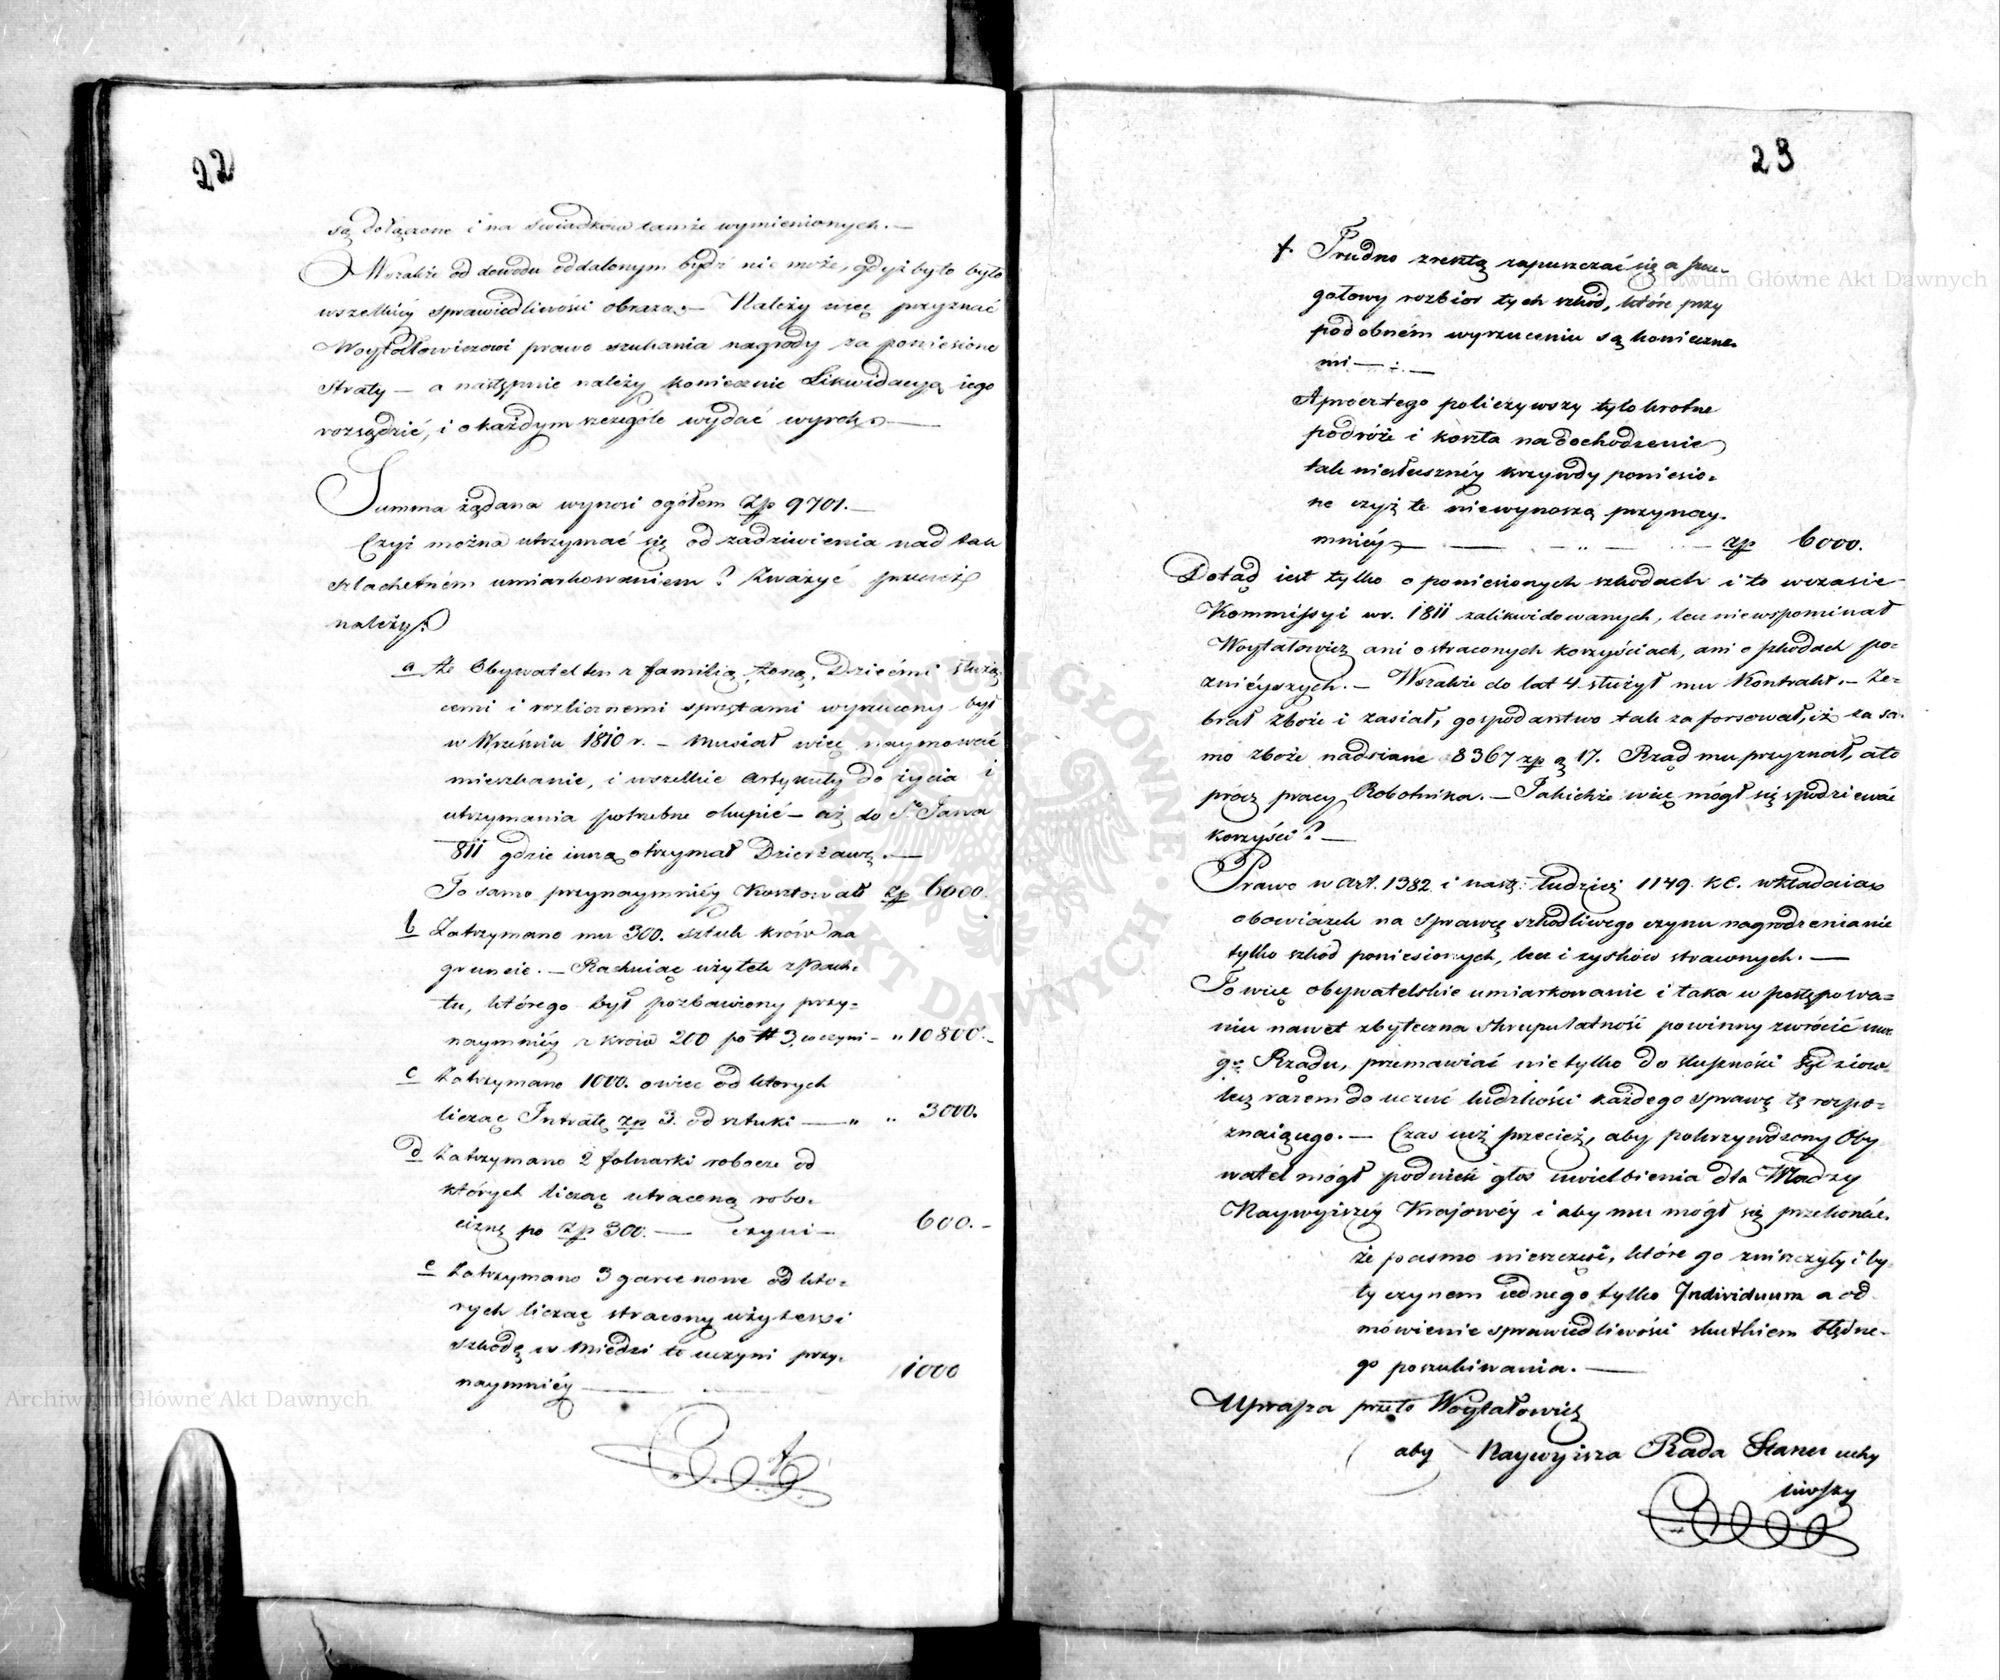 22
są dołączone i na świadków tamże wymienionych. —
Wszakże od dowodu oddalonym bydź nie może, gdyż było było
wszelkiéy sprawiedliwości obrazą — Należy więc przyznać
Woytałowiczowi prawo szukania nagrody za poniesione
straty — a następnie należy koniecznie Likwidacyą iego
rozsądzić, i o każdym szczególe wydać wyrok. —
Summa żądana wynosi ogółem Zp 9701. —
Czyż można utrzymać się od zadziwienia nad tak
szlachetném umiarkowaniem? Zważyć przecież
należy:
a że Obywatel ten z familią, żoną, Dziećmi służą-
cemi i rozlicznemi sprzętami wyrzucony był
w Wrześniu 1810 r. — musiał więc naymować
mieszkanie, i wszelkie artykuły do życia i
utrzymania potrzebne okupić — aż do St Jana
811 gdzie inną otrzymał Dzierżawę. —
To samo przynaymniéy kosztowało zp 6000.
b Zatrzymano mu 300. sztuk krów na
gruncie. — Rachuiąc użytek z Pach-
tu, którego był pozbawiony przy-
naymniéy z krów 200 po # 3, co czyni — „ 10800. —
c Zatrzymano 1000. owiec od których
licząc Intratę zp 3. od sztuki — „ „ 3000.
d Zatrzymano 2 folwarki robocze od
których licząc utraconą robo-
ciznę po zp 300. — czyni — 600. —
e Zatrzymano 3 garce nowe od któ-
rych licząc stracony użytek i
szkodę w miedzi to uczyni przy-
naymniéy — 1000
23
f. Trudno zresztą zapuszczać się o szcze-
gołowy rozbior tych szkód, które przy
podobném wyrzuceniu są konieczne-
mi — . —
A prócz tego policzywszy tylokrotne
podróże i koszta na dochodzenie
tak niesłusznéy krzywdy poniesio-
ne czyż te niewynoszą przynay-
mniéy — — „ — zp 6000.
Dotąd iest tylko o poniesionych szkodach i to wczasie
Kommissyi w r. 1811 zalikwidowanych, lecz niewspominał
Woytałowicz ani o straconych korzyściach, ani o szkodach po-
znieyszych. — Wszakże do lat 4 służył mu Kontrakt. — Ze-
brał zboże i zasiał, gospodarstwo tak zaforsował, iż za sa-
mo zboże nadsiane 8367 zp g 17. Rząd mu przyznał, a to
prócz pracy Robotnika. — Jakichże więc mógł się spodziewać
korzyści? —
Prawo w art. 1382 i nast: tudzież 1149. KC. wkładaią
obowiązek na sprawcę szkodliwego czynu nagrodzenia nie
tylko szkód poniesionych, lecz i zysków straconych. —
To więc obywatelskie umiarkowanie i taka w postępowa-
niu nawet zbyteczna skrupulatność powinny zwrócić uwa
gę Rządu, przemawiać nie tylko do słuszności Sędziow
lecz razem do uczuć ludzkości każdego sprawę tę rozpo-
znaiącego. — Czas iuż przecież, aby pokrzywdzony Oby
watel mógł podnieść głos uwielbienia dla Władzy
Naywyższéy Krajowéy i aby mu mógł się przekonać,
że pasmo nieszczęść, które go zniszczyły i by-
ły czynem iednego tylko Individuum a od-
mówienie sprawiedliwości skutkiem błędne-
go poszukiwania. —
Uprasza przeto Woytałowicz
aby Naywyższa Rada Stanu uchy
liwszy
Archiwum Główne Akt Dawnych
Archiwum Główne Akt Dawnych
ARCHIWUM GŁÓWNE AKT DAWNYCH